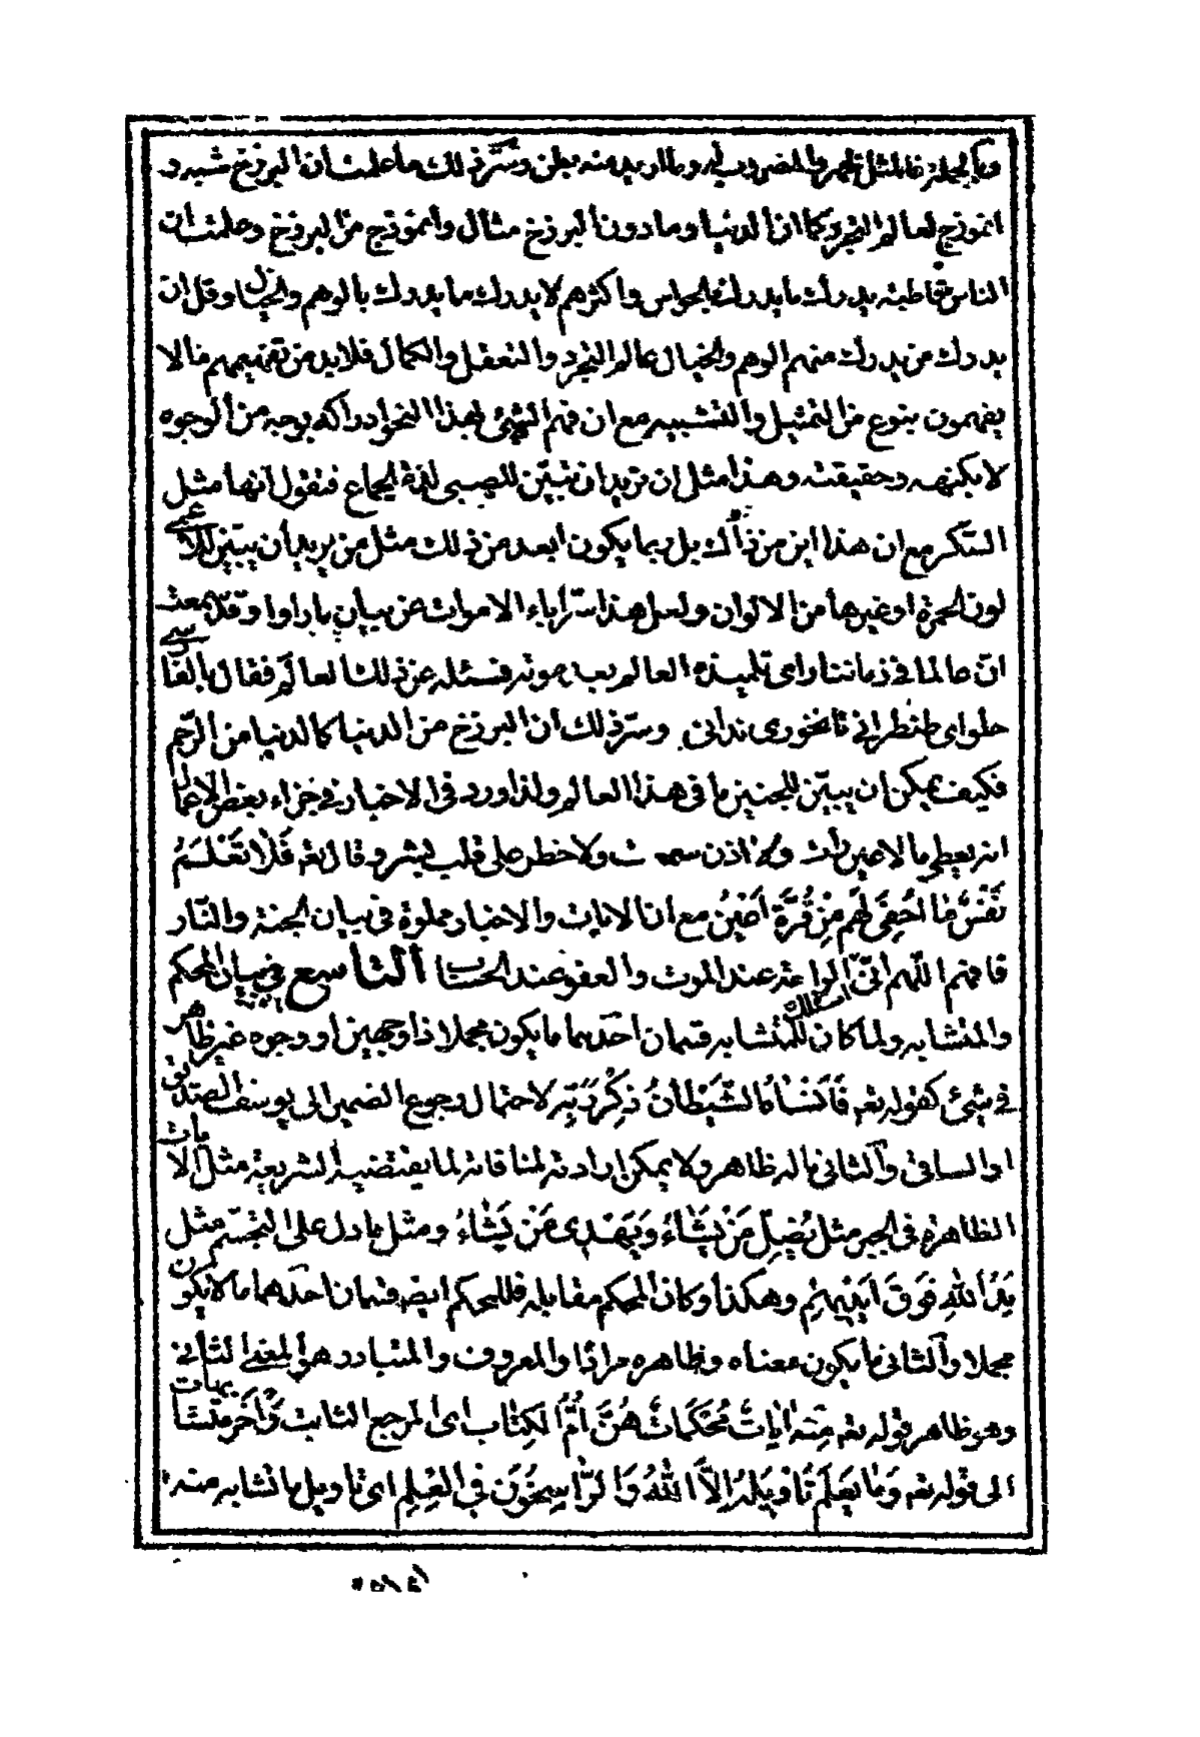 وبالجملة فالمثل ظهر والمضروب له وما اريد منه بطن وسرّ ذلك ما علمت ان البرزخ شبه و
انموذج لعالم التجرد كما ان الدنيا وما دون البرزخ مثال وانموذج من البرزخ وعلمت ان
الناس قاطبة يدرك ما يدرك بالحواس واكثرهم لا يدرك ما يدرك بالوهم والخيال وقل ان
يدرك من يدرك منهم الوهم والخيال عالم التجرد والتعقل والكمال فلابد من تفهيمهم ما لا
يفهمون بنوع من التمثيل والتشبيه مع ان فهم الشئ بهذا النحو ادراكه بوجه من الوجوه
لا بكنهه وحقيقته وهذا مثل ان تريد ان تبيّن للصبى لذة الجماع فتقول انها مثل
السّكر مع ان هذا اين من ذاك بل ربما يكون ابعد من ذلك مثل من يريد ان يبيّن للاعمى
لون الحمرة او غيرها من الالوان ولعل هذا سرّ اباء الاموات عن بيان ما راوا وقد سمعت
انّ عالما فى زماننا راى تلميذه العالم بعد موته فسئله عن ذلك العالم فقال بالفارسى
حلواى طنطرانى تا نخورى ندانى وسرّ ذلك ان البرزخ من الدنيا كالدنيا من الرّحم
فكيف يمكن ان يبيّن للجنين ما فى هذا العالم ولذا ورد فى الاخبار فى جزاء بعض الاعمال
انه يعطى ما لا عين رات ولا اذن سمعت ولا خطر على قلب بشر وقال تعه فَلا تَعْلَمُ
نَفْسٌ ما اُخفِىَ لَهُم مِنْ قُرَّةِ اَعْيُنٍ مع ان الايات والاخبار مملوة فى بيان الجنة والنار
فافهم اللّهم انّى اسئلك الراحة عند الموت والعفو عند الحساب التاسع فى بيان المحكم
والمتشابه ولما كان للمتشابه قسمان احدهما ما يكون مجملا ذا وجهين او وجوه غير ظاهر
فى شئ كقوله تعه فَاَنْسٰاهُ الشَّيْطٰانُ ذِكْرَ رَبِّهِ لاحتمال رجوع الضمير الى يوسف الصديق
او الساقى والثانى ما له ظاهر ولا يمكن ارادته لمنافاته لما يقتضيه الشريعة مثل الايات
الظاهرة فى الجبر مثل يُضِلُّ مَنْ يَشٰاءُ وَيَهْدِى مَنْ يَشٰاءُ ومثل ما دل على التجسّم مثل
يَدُ اللهِ فَوْقَ اَيْدِيهِمْ وهكذا وكان المحكم مقابله فللمحكم ايضه قسمان احدهما ما لا يكون
مجملا والثانى ما يكون معناه وظاهره مرادًا والمعروف والمتبادر هو المعنى الثانى
وهو ظاهر قوله تعه مِنْهُ اٰيٰاتٌ مُحْكَمٰاتٌ هُنَّ اُمُّ الكِتٰابِ اى المرجع الثابت وَاُخَرُ متشابهات
الى قوله تعه وَمٰا يَعلَمُ تَاْوِيلَهُ اِلاَّ اللهُ وَالرّٰاسِخُونَ فِى العِلْمِ اى تاويل ما تشابه منه